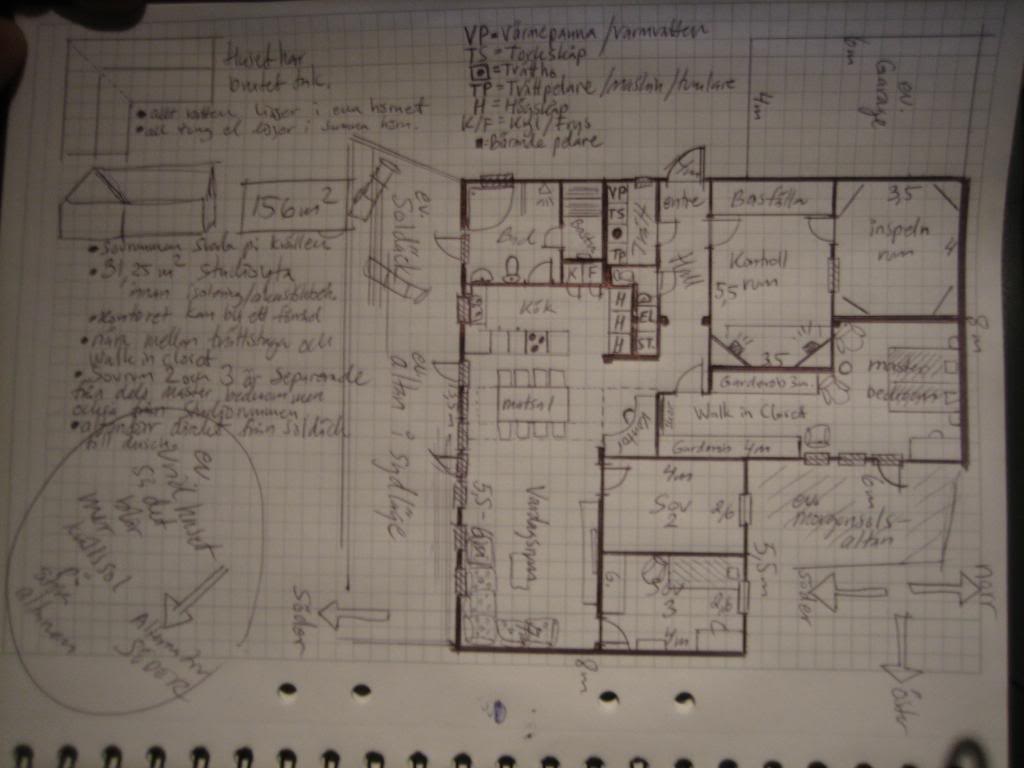 VP = Värmepanna / varmvatten
TS = Torkskåp
= Tvättho
TP = Tvättpelare / maskin / tumlare
H = Högskåp
K/F = Kyl / Frys
= Bärande pelare
Huset har
brutet tak.
• allt vatten ligger i ena hörnet
• all tung el ligger i samma hörn.
156 m²
• Sovrummen svala på kvällen
• 31,25 m² studioyta
innan isolering
• Kontoret kan bli ett
• nära mellan tvättstuga och
Walk in closet
• Sovrum 2 och 3 är separerade
från master bedroommen
också från studiorummen
• altandörr direkt från soldäck
till dusch.
ev
vrid huset
så det
blir
mer
kvällsol
på
altanen
Allmän
Söder
ev.
Soldäck
ev.
altan i sydläge
Söder
ev
Garage
6m
4m
Bad
Bastu
VP
TS
TP
K F
H
H
H
EL
ST.
entre
Hall
Basfälla
Kontroll
rum
5,5
3,5
3,5
inspeln
rum
4
8m
Kök
matsal
Kontor
Garderob 3m
Walk in Closet
Garderob 4m
master
bedroom
6m
3,5m
5,5-6m
Vardagsrum
4m
Sov
2
2,6
Sov
3
2,6
4m
5,5m
8m
ev
morgonsols-
altan
Väster
Norr
Öster